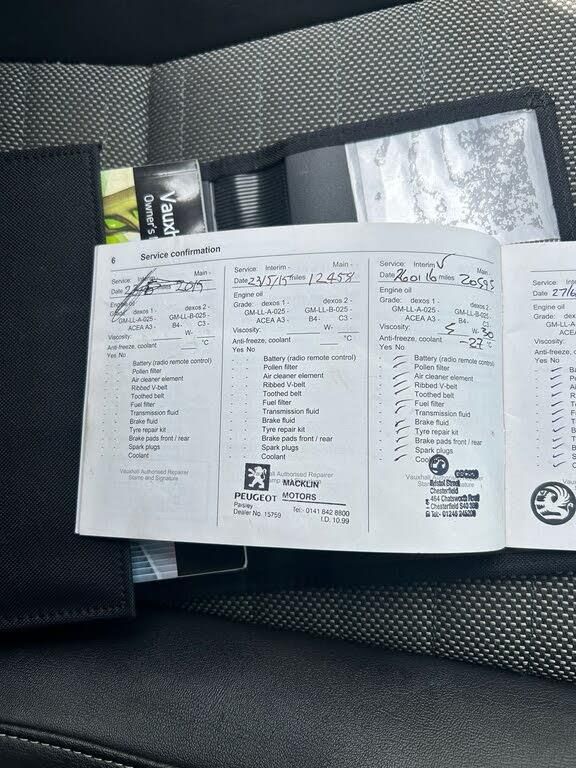 Vauxh
Owner's
6
Service confirmation
Service: Interim - Main -
Date 2015
Engine oil
Grade: dexos 1 - dexos 2 -
GM-LL-A-025 - GM-LL-B-025 -
ACEA A3 - B4- C3 -
Viscosity: W-
Anti-freeze, coolant °C
Yes No
Battery (radio remote control)
Pollen filter
Air cleaner element
Ribbed V-belt
Toothed belt
Fuel filter
Transmission fluid
Brake fluid
Tyre repair kit
Brake pads front / rear
Spark plugs
Coolant
Vauxhall Authorised Repairer
Stamp and Signature
Service: Interim - Main -
Date 23/5/15 miles 12458
Engine oil
Grade: dexos 1 - dexos 2 -
GM-LL-A-025 - GM-LL-B-025 -
ACEA A3 - B4- C3 -
Viscosity: W-
Anti-freeze, coolant °C
Yes No
Battery (radio remote control)
Pollen filter
Air cleaner element
Ribbed V-belt
Toothed belt
Fuel filter
Transmission fluid
Brake fluid
Tyre repair kit
Brake pads front / rear
Spark plugs
Coolant
all Authorised Repairer
MACKLIN
PEUGEOT MOTORS
Paisley Tel:- 0141 842 8800
Dealer No. 15759 I.D. 10.99
Service: Interim √ Main -
Date 260116 miles 20595
Engine oil
Grade: dexos 1 - dexos 2 -
GM-LL-A-025 - GM-LL-B-025 -
ACEA A3 - B4- C3 -
Viscosity: 5 W- 30
Anti-freeze, coolant -27 °C
Yes No
Battery (radio remote control)
Pollen filter
Air cleaner element
Ribbed V-belt
Toothed belt
Fuel filter
Transmission fluid
Brake fluid
Tyre repair kit
Brake pads front / rear
Spark plugs
Coo
Vauxhall
Bristol Street
Chesterfield
464 Chatsworth Road
Chesterfield S40 3BD
Tel:- 01246 245200
Service: Inte
Date 27/6
Engine oil
Grade: dex
GM-LL-A
ACEA
Viscosity:
Anti-freeze, c
Yes No